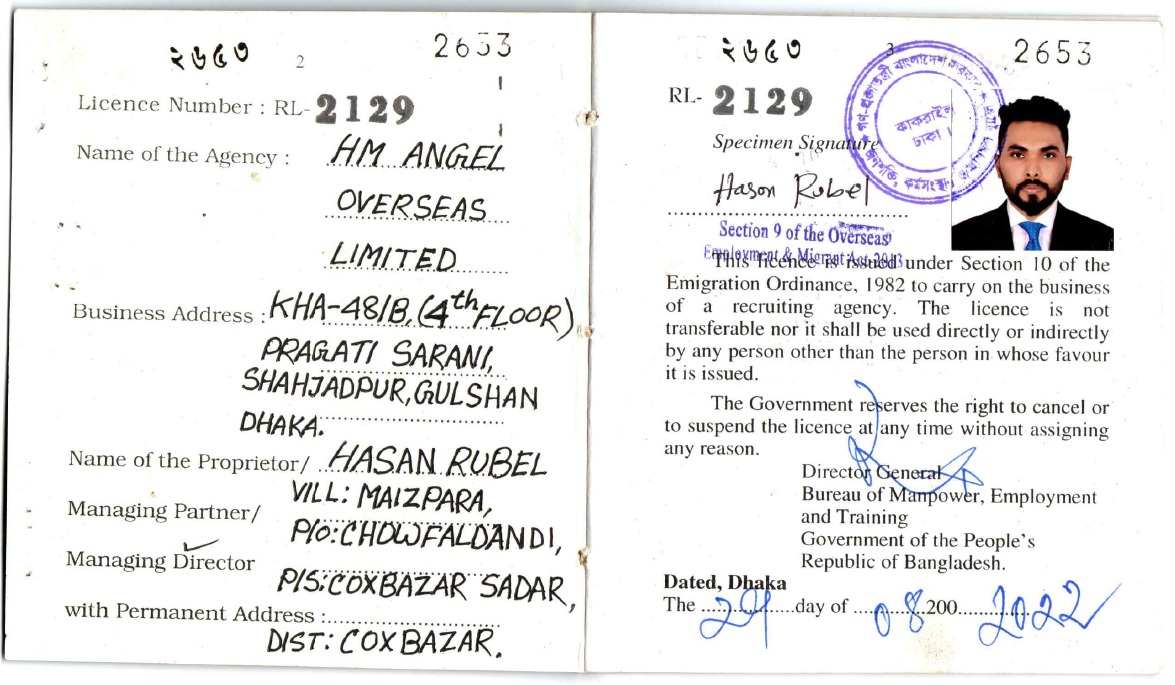 ২৬৫৩
2
2653
Licence Number : RL-2129
Name of the Agency : HM ANGEL
OVERSEAS
LIMITED
Business Address : KHA-48/B, (4th FLOOR)
PRAGATI SARANI,
SHAHJADPUR, GULSHAN
DHAKA.
Name of the Proprietor/ HASAN RUBEL
VILL: MAIZPARA,
Managing Partner/
P/O: CHOWFALDANDI,
Managing Director
P/S: COXBAZAR SADAR,
with Permanent Address :
DIST: COXBAZAR.
২৬৫৩
3
2653
RL- 2129
Specimen Signature
Hason Rubel
কাকরাইল
ঢাকা।
Section 9 of the Overseas
Employment & Migrant Act-2013
This licence is issued under Section 10 of the
Emigration Ordinance, 1982 to carry on the business
of a recruiting agency. The licence is not
transferable nor it shall be used directly or indirectly
by any person other than the person in whose favour
it is issued.
The Government reserves the right to cancel or
to suspend the licence at any time without assigning
any reason.
Director General
Bureau of Manpower, Employment
and Training
Government of the People's
Republic of Bangladesh.
Dated, Dhaka
The ....29....day of ....08....200....2022